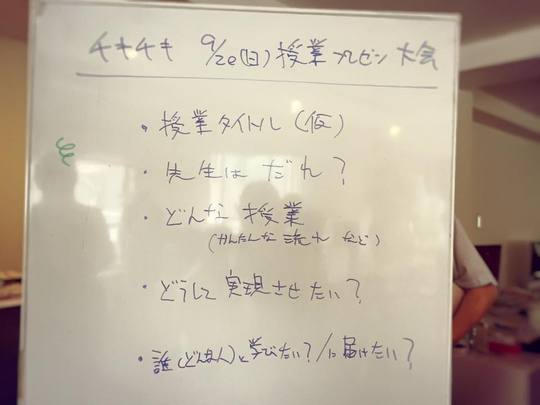 チキチキ 9/20(日)授業プレゼン大会
・授業タイトル(仮)
・先生はだれ?
・どんな授業
(かんたんな流れなど)
・どうして実現させたい?
・誰(どんな人)と学びたい?/に届けたい?